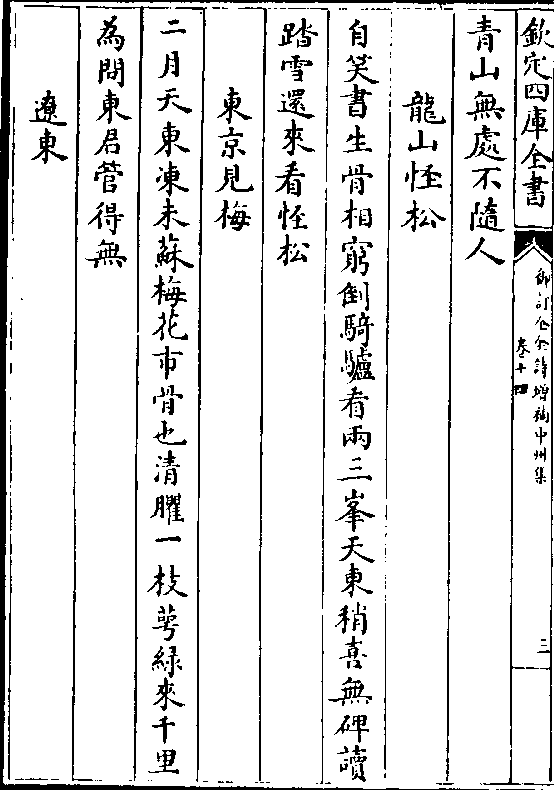 欽定四庫全書
御訂全金詩增補中州集
卷十四
三
青山無處不隨人
龍山怪松
自笑書生骨相窮倒騎驢看兩三峯天東稍喜無碑讀
踏雪還來看怪松
東京見梅
二月天東凍未蘇梅花市骨也清臞一枝萼綠來千里
為問東君管得無
遼東